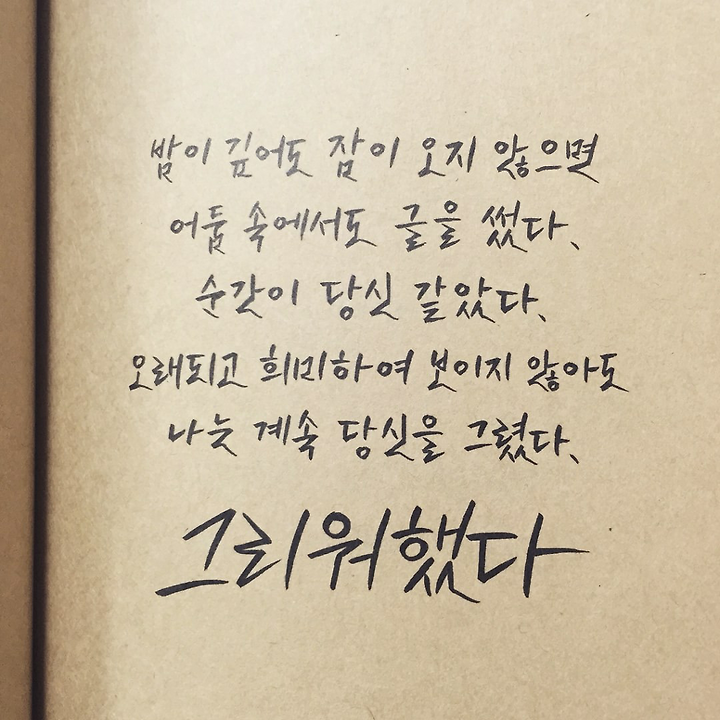 밤이 깊어도 잠이 오지 않으면
어둠 속에서도 글을 썼다.
순간이 당신 같았다.
오래되고 희미하여 보이지 않아도
나는 계속 당신을 그렸다.
그리워했다